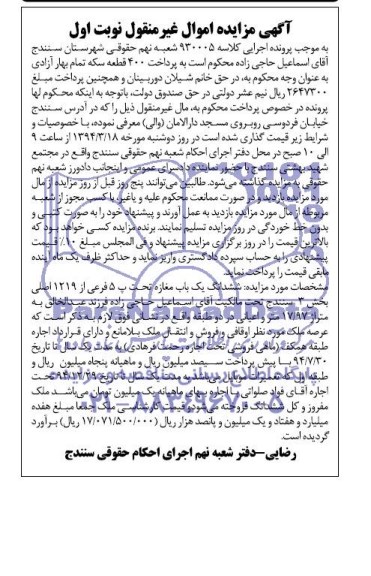 آگهی مزایده اموال غیرمنقول نوبت اول
به موجب پرونده اجرایی کلاسه ۹۳۰۰۰۵ شعبه نهم حقوقی شهرستان سنندج
آقای اسماعیل حاجی زاده محکوم است به پرداخت ۴۰۰ قطعه سکه تمام بهار آزادی
به عنوان وجه محکوم به، در حق خانم شیلان دوربینان و همچنین پرداخت مبلغ
۲۶۴۷۳۰۰ ریال نیم عشر دولتی در حق صندوق دولت، باتوجه به اینکه محکوم لها
پرونده در خصوص پرداخت محکوم به، مال غیرمنقول ذیل را که در آدرس سنندج
خیابان فردوسی روبروی مسجد دارالامان (والی) معرفی نموده، با خصوصیات و
شرایط زیر قیمت گذاری شده است در روز دوشنبه مورخه ۱۳۹۴/۳/۱۸ از ساعت ۹
الی ۱۰ صبح در محل دفتر اجرای احکام شعبه نهم حقوقی سنندج واقع در مجتمع
شهید بهشتی سنندج با حضور نماینده دادسرای عمومی و اینجانب دادورز شعبه نهم
حقوقی به مزایده گذاشته می‌شود. طالبین می‌توانند پنج روز قبل از روز مزایده از مال
مورد مزایده بازدید و در صورت ممانعت محکوم علیه و یا غیر، با کسب مجوز از شعبه
مربوطه از مال مورد مزایده بازدید به عمل آورند و پیشنهاد خود را به صورت کتبی و
بدون خط خوردگی در روز مزایده تسلیم نمایند. برنده مزایده کسی خواهد بود که
بالاترین قیمت را در روز برگزاری مزایده پیشنهاد و فی المجلس مبلغ ۱۰٪ قیمت
پیشنهادی را به حساب سپرده دادگستری واریز نماید و حداکثر ظرف یک ماه آینده
مابقی قیمت را پرداخت نماید.
مشخصات مورد مزایده: ششدانگ یک باب مغازه تحت پ ۵ فرعی از ۱۲۱۹ اصلی
بخش ۳ سنندج تحت مالکیت آقای اسماعیل حاجی زاده فرزند عبدالخالق به
متراژ ۱۷/۹۷ متر و اعیانی در دو طبقه واقع در نشانی فوق لازم به ذکر است که
عرصه ملک مورد نظر اوقافی و فروش و انتقال ملک بلامانع و دارای قرارداد اجاره
طبقه همکف به مدت یک سال تا تاریخ
۹۴/۷/۳۰ با پیش پرداخت سیصد میلیون ریال و ماهیانه پنجاه میلیون ریال و
طبقه اول که تعمیرات موبایل می‌باشد به مدت یک سال تا تاریخ تحت
اجاره آقای فواد صلواتی با اجاره بهای ماهیانه یک میلیون تومان می‌باشد ملک
مفروز و کل ششدانگ فروخته می‌شود و قیمت کارشناسی ملک جمعا مبلغ هفده
میلیارد و هفتاد و یک میلیون و پانصد هزار ریال (۱۷/۰۷۱/۵۰۰/۰۰۰ ریال) برآورد
گردیده است.
رضایی-دفتر شعبه نهم اجرای احکام حقوقی سنندج